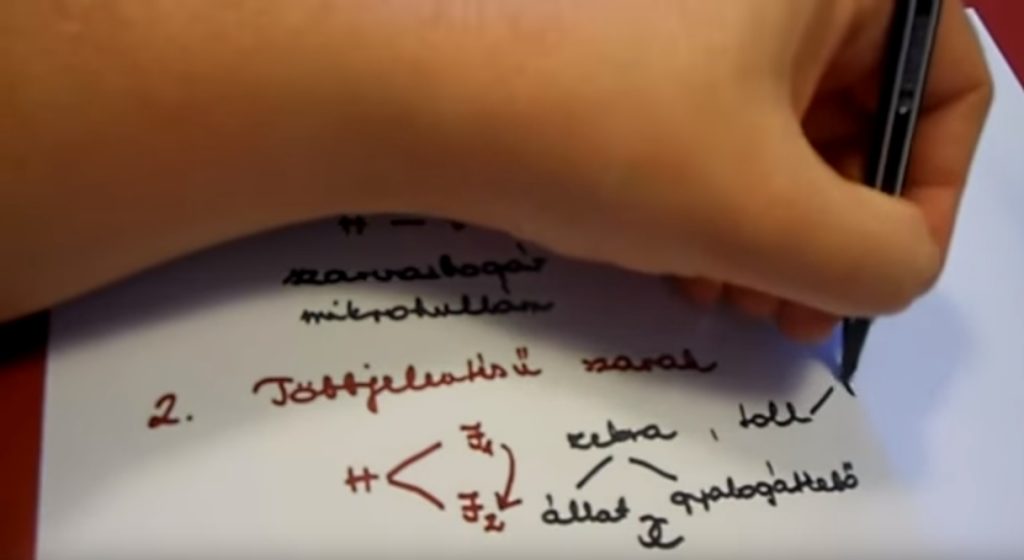 H –
szarvasbogár
mikrohullám
2. Többjelentésű szavak
zebra, toll
H J1
J2 állat gyalogátkelő